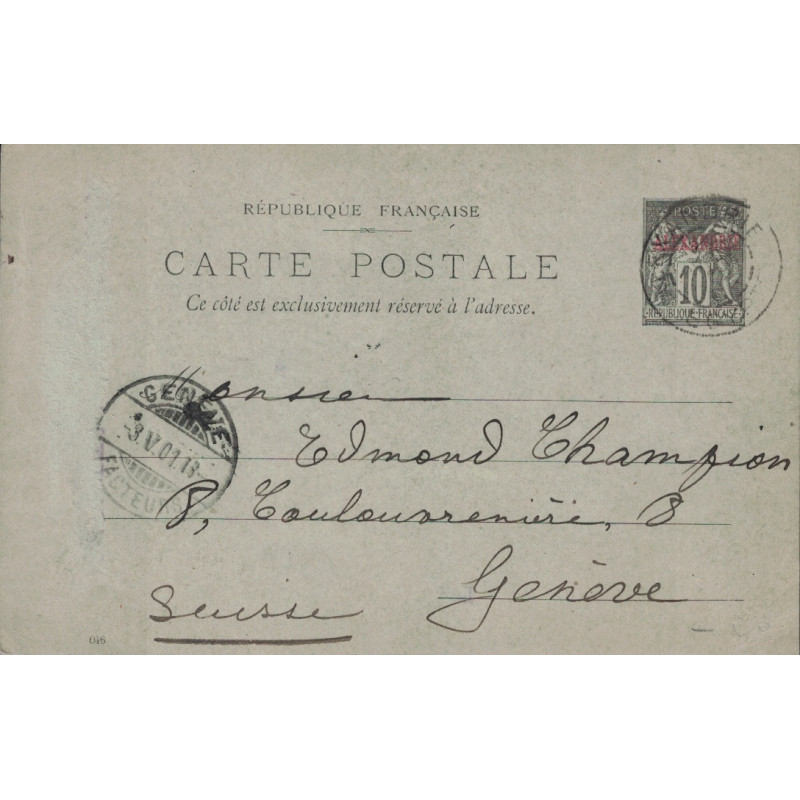 RÉPUBLIQUE FRANÇAISE
CARTE POSTALE
Ce côté est exclusivement réservé à l'adresse.
POSTE
ALEXANDRIE
10
REPUBLIQUE FRANÇAISE
GENÈVE
-3.V.01.13-
FACTEUR
Monsieur
Edmond Champion
8, Coulouvrenière, 8
Genève
Suisse
046